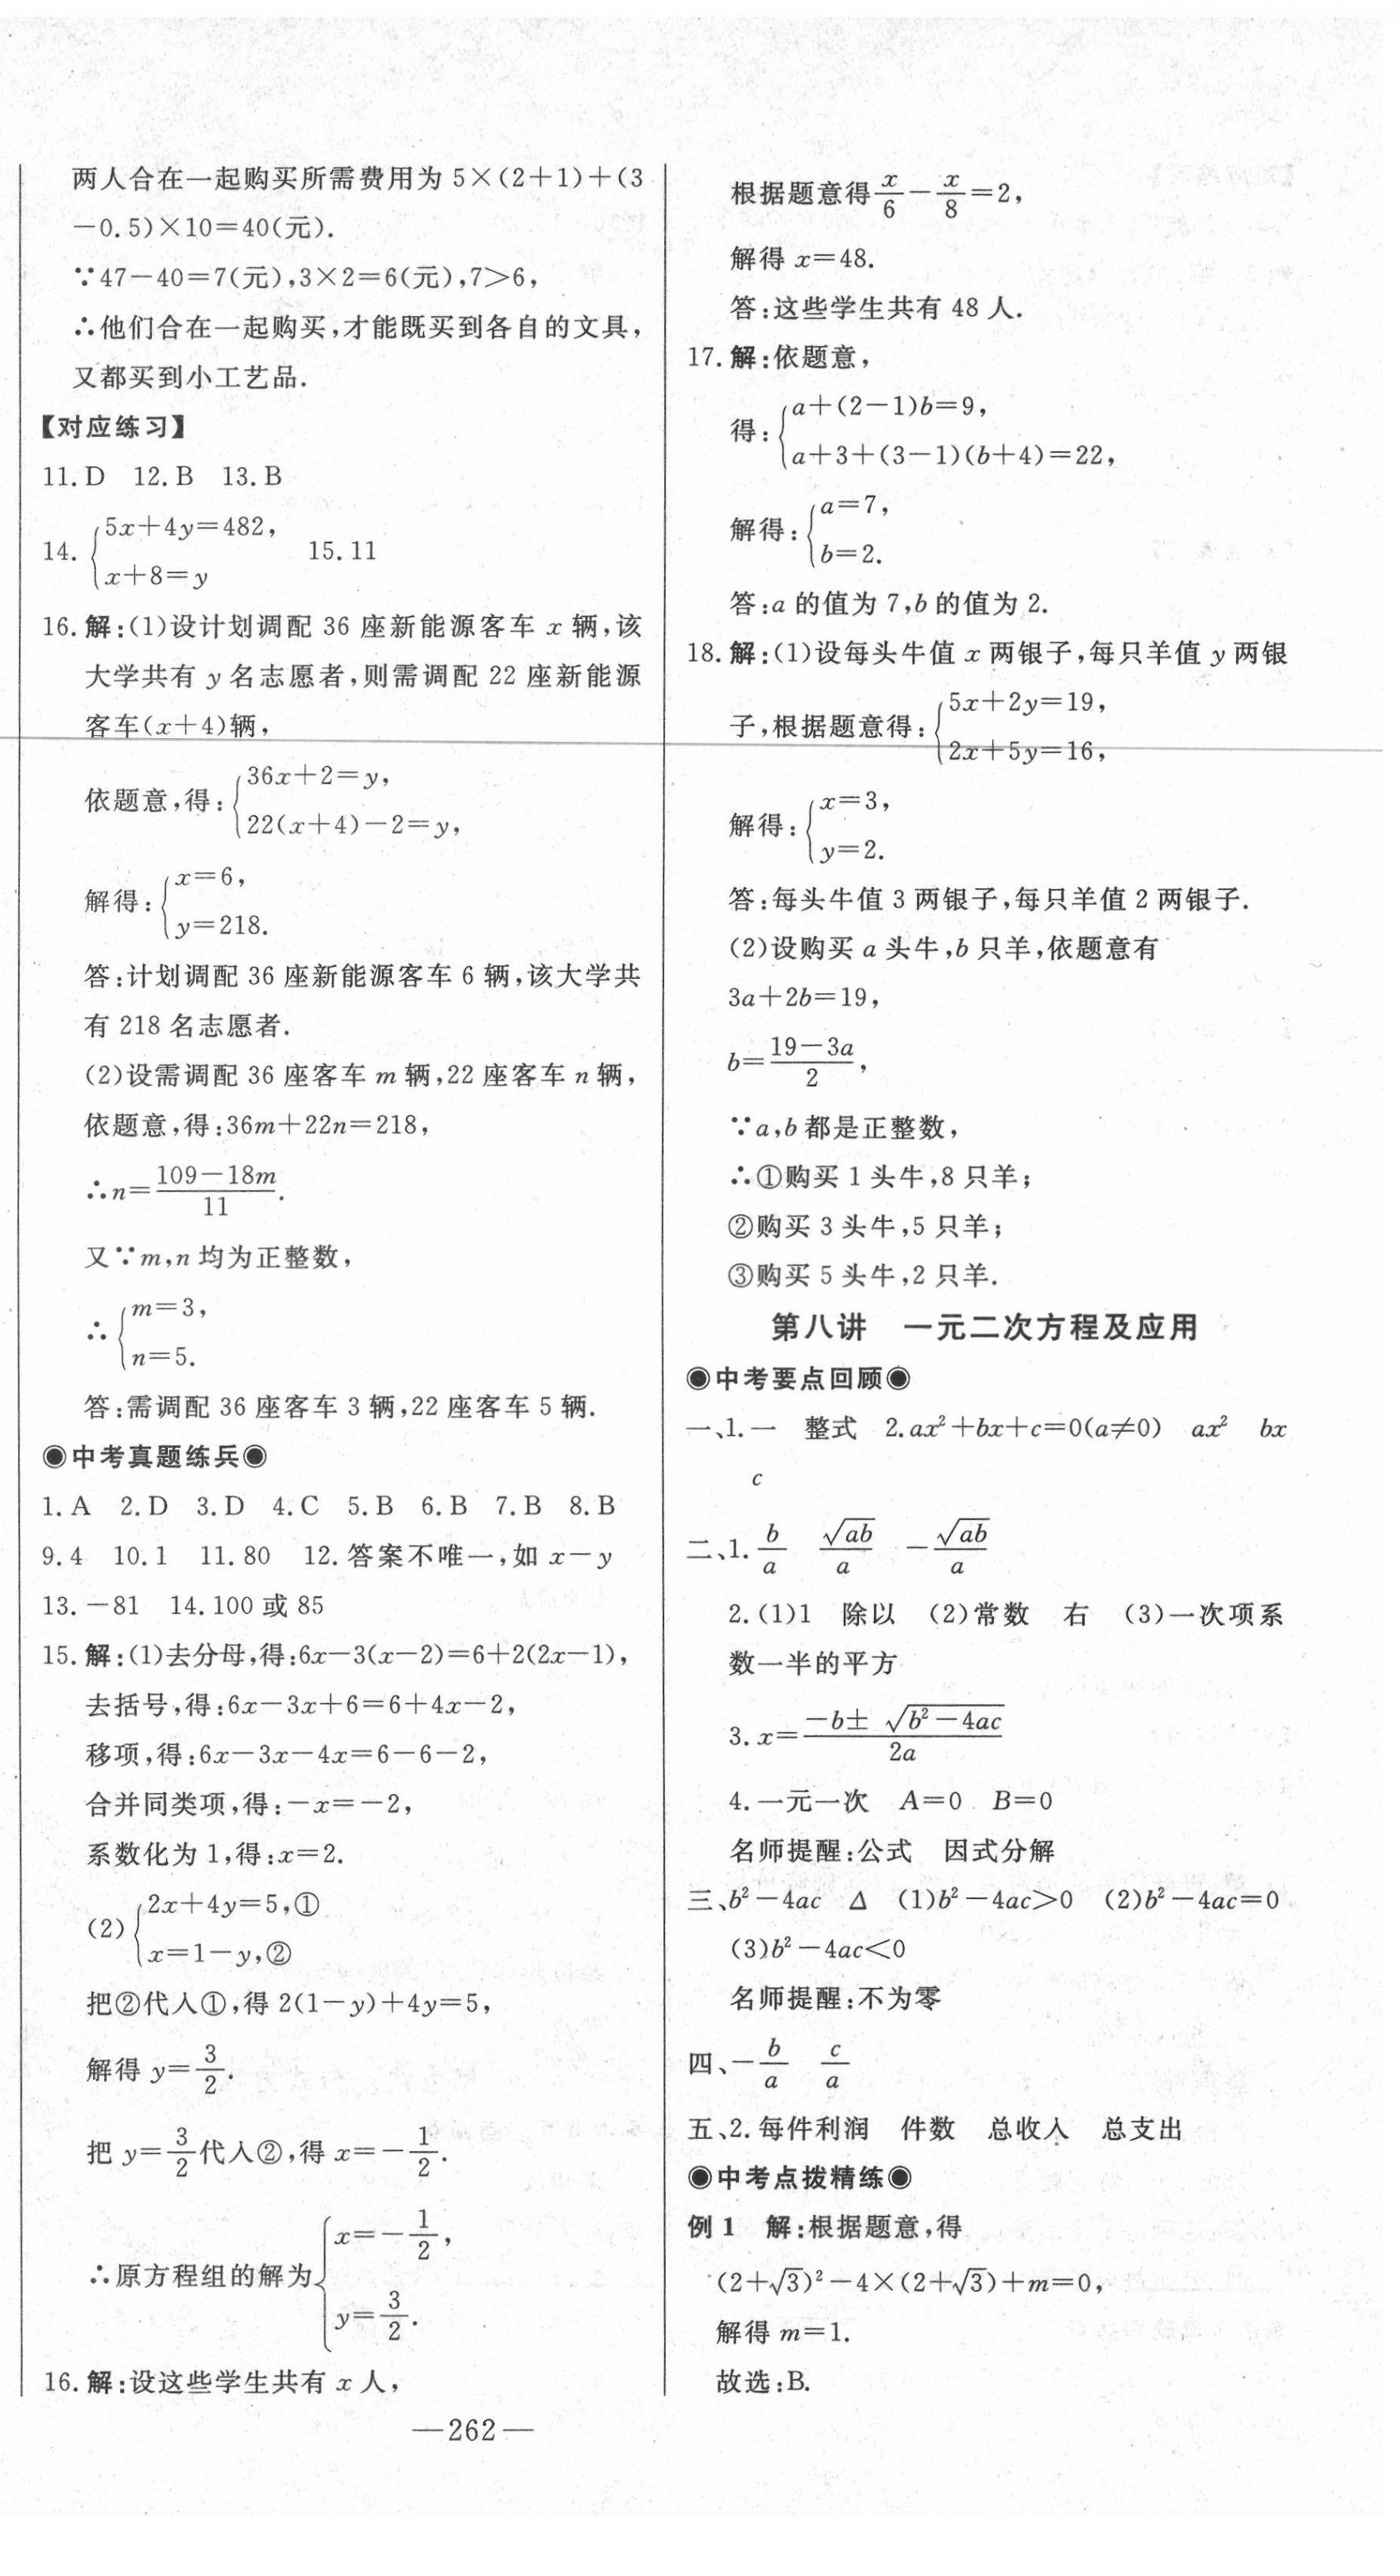 两人合在一起购买所需费用为 5×(2+1)+(3
-0.5)×10=40(元).
∵47-40=7(元),3×2=6(元),7>6,
∴他们合在一起购买,才能既买到各自的文具,
又都买到小工艺品.
【对应练习】
11.D 12.B 13.B
14. {5x+4y=482, x+8=y 15.11
16.解:(1)设计划调配 36 座新能源客车 x 辆,该
大学共有 y 名志愿者,则需调配 22 座新能源
客车(x+4)辆,
依题意,得:{36x+2=y,
22(x+4)-2=y,
解得:{x=6,
y=218.
答:计划调配 36 座新能源客车 6 辆,该大学共
有 218 名志愿者.
(2)设需调配 36 座客车 m 辆,22 座客车 n 辆,
依题意,得:36m+22n=218,
∴n=(109-18m)/11.
又∵m,n 均为正整数,
∴{m=3,
n=5.
答:需调配 36 座客车 3 辆,22 座客车 5 辆.
◉中考真题练兵◉
1.A 2.D 3.D 4.C 5.B 6.B 7.B 8.B
9.4 10.1 11.80 12.答案不唯一,如 x-y
13.-81 14.100 或 85
15.解:(1)去分母,得:6x-3(x-2)=6+2(2x-1),
去括号,得:6x-3x+6=6+4x-2,
移项,得:6x-3x-4x=6-6-2,
合并同类项,得:-x=-2,
系数化为 1,得:x=2.
(2){2x+4y=5,①
x=1-y,②
把②代人①,得 2(1-y)+4y=5,
解得 y=3/2.
把 y=3/2代人②,得 x=-1/2.
∴原方程组的解为{x=-1/2,
y=3/2.
16.解:设这些学生共有 x 人,
根据题意得x/6-x/8=2,
解得 x=48.
答:这些学生共有 48 人.
17.解:依题意,
得:{a+(2-1)b=9,
a+3+(3-1)(b+4)=22,
解得:{a=7,
b=2.
答:a 的值为 7,b 的值为 2.
18.解:(1)设每头牛值 x 两银子,每只羊值 y 两银
子,根据题意得:{5x+2y=19,
2x+5y=16,
解得:{x=3,
y=2.
答:每头牛值 3 两银子,每只羊值 2 两银子.
(2)设购买 a 头牛,b 只羊,依题意有
3a+2b=19,
b=(19-3a)/2,
∵a,b 都是正整数,
∴①购买 1 头牛,8 只羊;
②购买 3 头牛,5 只羊;
③购买 5 头牛,2 只羊.
第八讲 一元二次方程及应用
◉中考要点回顾◉
一、1.一 整式 2.ax²+bx+c=0(a≠0) ax² bx
c
二、1.b/a √ab/a -√ab/a
2.(1)1 除以 (2)常数 右 (3)一次项系
数一半的平方
3.x=(-b±√(b²-4ac))/2a
4.一元一次 A=0 B=0
名师提醒:公式 因式分解
三、b²-4ac Δ (1)b²-4ac>0 (2)b²-4ac=0
(3)b²-4ac<0
名师提醒:不为零
四、-b/a c/a
五、2.每件利润 件数 总收人 总支出
◉中考点拨精练◉
例 1 解:根据题意,得
(2+√3)²-4×(2+√3)+m=0,
解得 m=1.
故选:B.
—262—